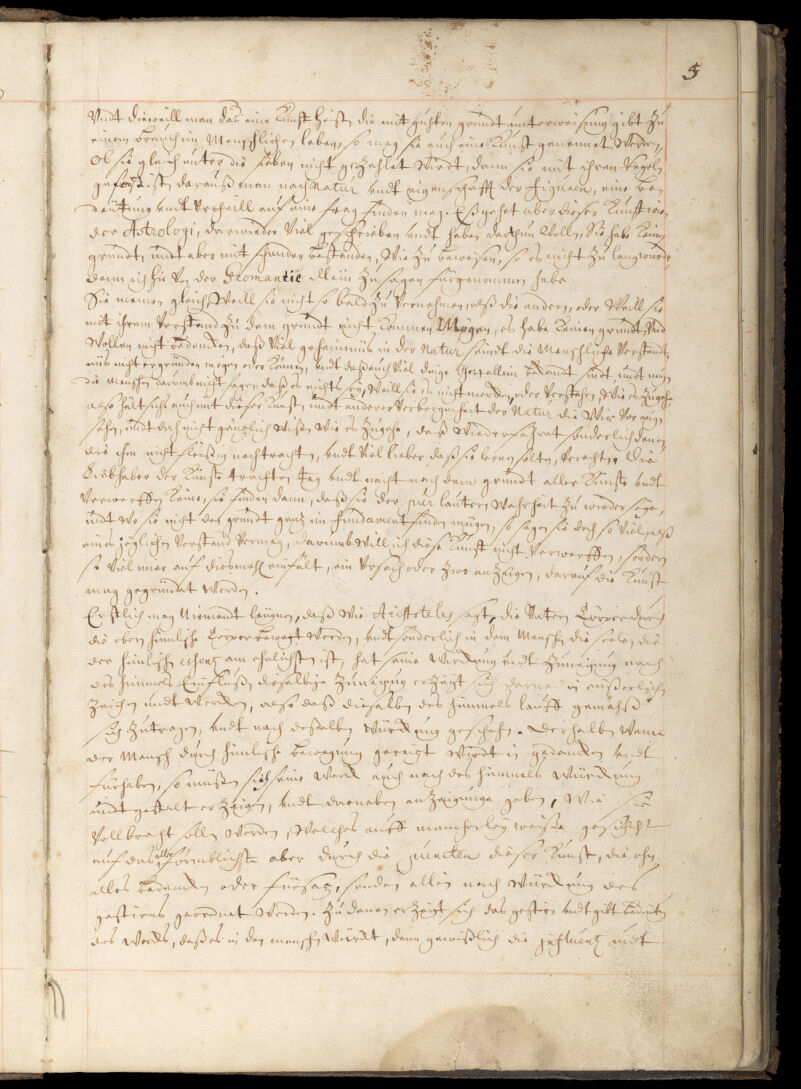 5
Undt dieweill man das eine Kunst heist, die mit guhten grundt unterweisung gibt zu
einem brauch im Menschlichen leben, so mag sie auch eine Kunst genennet werden,
Ob sie gleich unter die sieben nicht gezehlet wirdt, dann sie mit ihren Regeln
gefast ist, darauß man nach Natur undt eigenschafft der Figuren, eine be
deutung undt Urtheill auf eine frag finden mag. Eß gehet aber dieser Kunst wie
der Astrologi, darwieder Viel geschrieben undt haben darthun wollen, Sie habe keinen
grundt, undt aber mit schanden bestanden, Wie zu beweisen, so es nicht zu lang were,
dann ich hie von der Geomantie allein zu sagen fürgenommen habe
Sie meinen gleich, Weill sie nicht so bald zu vernehmen, alß die andern, oder Weill sie
mit ihrem Verstand zu dem grundt nicht kommen Mögen, es habe keinen grundt, Und
Wollen nicht bedencken, daß Viel geheimnüs in der Natur seindt die Menschliche Verstandt
nicht ergründen mögen oder können, undt daß auch Viel dinge Gott allein bekandt sindt, undt mügen
die Menschen darumb nicht sagen, daß es nichts sey, Weill sie es nicht oder Verstehen, Wie es zugehe
also hält sichs auch mit dieser Kunst, undt anderer Verborgenheit der Natur, die Wir vor augen
sehen, undt doch nicht gäntzlich wißen wie es zugehe, daß Wiederfahret sonderlich denen
die ihm nicht fleißig nachtrachten, undt viel lieber daß sie lernen solten, Verachten. Die
Liebhaber der Künste trachten Tag undt nacht nach dem grundt aller Künste undt
Verwerffen keine, sie finden dann, daß sie der pur lautern Wahrheit zu wieder seye,
undt wo sie nicht den grundt gantz im Fundament finden mügen, so sagen sie doch so viel, alß
eines jeglichen Verstand Vermag, darumb Will ich diese Kunst nicht Verwerffen, sondern
so Viel mir auf diesmahl einfält, ein Ursach oder zwo anzeigen, darauf die Kunst
mag gegründet werden.
Erstlich mag Niemandt leugnen, daß Wie Aristoteles sagt, die Untern Cörper durch
die obern himlische Cörper bewegt werden, undt sonderlich in dem Menschen die seele, die
der himlischen am ehnlichsten ist, hat seine Wirckung undt Zuneigung nach
des himmels Einfluß, dieselbige Zuneigung erzeigt sich darnach in eußerlichen
Zeichen undt Wercken, also daß dieselben des himmels lauff gemäheß
sich zutragen, undt nach deßelben Würckung geschehen. Derhalben Wenn
der Mensch durch himlische bewegung geregt Wirdt in gedancken undt
fürhaben, so müßen sich seine Werck auch nach des himmels Würckung
undt gestalt erzeigen, undt darneben anzeigunge geben, Wie sie
Vollbracht sollen werden, Welches auff mancherley weiße geschicht
auf das aller förmblichst aber durch die puncten dieser Kunst, die ohn
alles bedencken oder fürsatz, sondern allein nach Würckung des
gestirns geordnet werden. Zu denen erzeigt sich das gestirn undt gibt bedeuten
des Wercks, daß es in den menschen Würckt, dann gewißlich die influentz undt